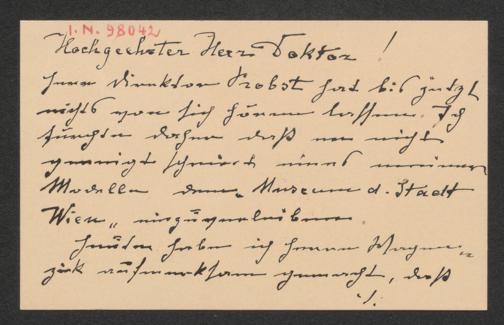 I.N. 98042
Hochgeehrter Herr Doktor!
Herr Direktor Probst hat bis jetzt
nichts von sich hören lassen. Ich
fürchte daher daß er nicht
geneigt scheint eines meiner
Modelle dem „Museum d. Stadt
Wien" einzuverleiben.
Heute habe ich Herrn
aufmerksam gemacht, daß